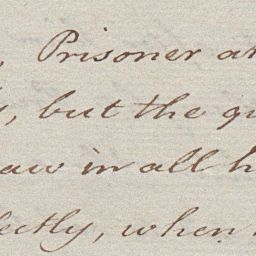 , Prisoner at
, but the qu
aw in all h
fectly, when